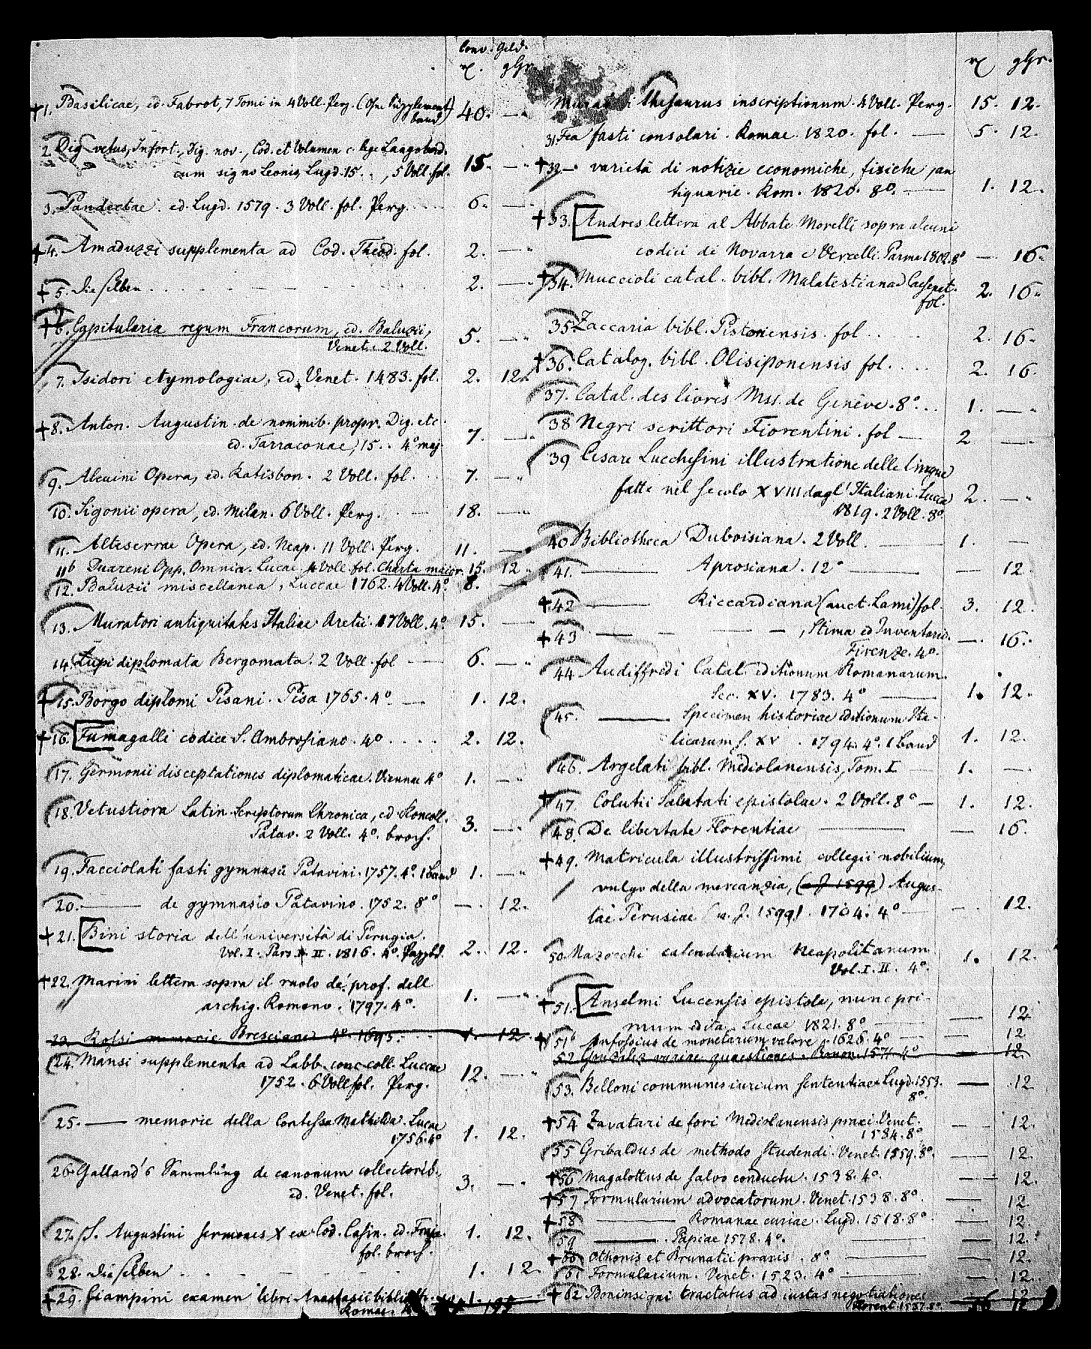 Conv. Geld.
gGr.
†1. Basilicae, ed. Fabrot, 7 Tomi in 4 Voll. Perg. (Ohne Supplement
band) 40. —
2. Dig. vetus, Infort., Dig. nov., Cod. et Volumen c. lege Langobard.
cum signo Leonis, Lugd. 15 . . , 5 Voll. fol. 15. —
3. Pandectae. ed. Lugd. 1579. 3 Voll. fol. Perg. 6. —
†4. Amaduzzi supplementa ad Cod. Theod. fol. 2. —
†5. Dieselben . . . . 2. —
†6. Capitularia regum Francorum, ed. Baluzii,
Venet. 2 Voll. 5. —
7. Isidori etymologiae, ed. Venet. 1483. fol. 2. 12.
†8. Anton. Augustin. de nominib. propr. Dig. etc.
ed. Tarraconae, 15 . . 4° maj. 7. —
9. Alcuini Opera, ed. Ratisbon. 2 Voll. fol. 7. —
10. Sigonii opera, ed. Milan. 6 Voll. Perg. 18. —
11. Alteserrae Opera, ed. Neap. 11 Voll. Perg. 11. —
11b Duareni Opp. Omnia. Lucae 4 Voll. fol. Charta maior. 15. 12
12. Baluzii miscellanea, Luccae 1762. 4 Voll. 4° 8. —
13. Muratori antiquitates Italiae Aretii. 17 Voll. 4° 15. —
14. Lupi diplomata Bergomata. 2 Voll. fol — 6. —
†15. Borgo diplomi Pisani. Pisa 1765. 4°. — 1. 12.
†16. Fumagalli codice S. Ambrosiano. 4° . . . . 2. 12.
17. Germonii disceptationes diplomaticae. Viennae 4° 1. —
18. Vetustiora Latin. Scriptorum Chronica, ed. Roncall.
Patav. 2 Voll. 4°. broch. 3. —
19. Facciolati fasti gymnasii Patavini. 1757. 4°. 1 Band 1. —
20. — de gymnasio Patavino. 1752. 8° — 12.
†21. Bini storia dell'università di Perugia.
Vol. I. Pars I. II. 1816. 4°. Pappbd. 2. 12.
†22. Marini lettera sopra il ruolo de' prof. dell
archig. Romano. 1797. 4°. 1. —
23. Rossi memorie Bresciane 4° 1693. . . 1. 12.
24. Mansi supplementa ad Labb. conc. coll. Luccae
1752. 6 Voll fol. Perg. 12. —
25. — memorie della Contessa Mathilda. Lucae
1756. 4° 1. 12.
26. Galland's Sammlung de canonum collectorib.
ed. Venet. fol. 3. —
27. S. Augustini sermones X ex Cod. Casin. ed.
fol. broch. 1. 12.
28. Dieselben . . . . 1. 12.
†29. Ciampini examen libri Anastasii biblioth.
Romae. 4° 1.
gGr.
thesaurus inscriptionum. 4 Voll. Perg. 15. 12.
31. Fea fasti consolari. Romae. 1820. fol. — 5. 12.
†32. — varietà di notizie economiche, fisiche, an
tiquarie. Rom. 1820. 8°. — 1. 12.
†33. Andres lettera al Abbate Morelli sopra alcuni
codici di Novarra e Vercelli. Parma 1802. 8° — 16.
†34. Muccioli catal. bibl. Malatestianae Caesenat.
fol. 2. 16.
35. Zaccaria bibl. Pistoriensis. fol . . 2. 16.
†36. Catalog. bibl. Olisiponensis fol. . . . . 2. 16
37. Catal. des livres Mss. de Genève. 8°. . . 1. —
38 Negri scrittori Fiorentini. fol — 2 —
39 Cesare Lucchesini illustratione delle lingue
fatte nel secolo XVIII dagl' Italiani. Lucca
1819. 2 Voll. 8°. 2. —
40 Bibliotheca Duboisiana. 2 Voll. — 1. —
41. — Aprosiana. 12° — — 12.
†42 — Riccardiana (auct. Lami) fol. 3. 12.
†43 — — —, Stima ed Inventario.
Firenze. 4°. — 16.
44 Audiffredi Catal. editionum Romanarum
Sec. XV. 1783. 4° — 1. 12.
45. — Specimen historiae editionum Ita-
licarum s. XV . 1794. 4°. 1 Band 1. 12.
46. Argelati bibl. Mediolanensis, Tom. I — 1. —
†47. Colutii Salutati epistolae. 2 Voll. 8° — 1. 12.
48. De libertate Florentiae — — 16.
†49. Matricula illustrissimi collegii nobilium,
vulgo della mercanzia, (a. J. 1599) Augus-
tae Perusiae (a. J. 1599). 1704. 4° — — 12.
50. Mazocchi calendarium Neapolitanum
Vol. I. II. 4°. 1. 12.
†51. Anselmi Lucensis epistola, nunc pri-
mum edita. Lucae 1821. 8° — 12
†51b de monetarum valore. 1626. 4° — 12
52. Gonzalez variae quaestiones. 1571 4° — 12
53. Belloni communes iurium sententiae. Lugd. 1553.
8°. — 12
†54 Zavatari de fori Mediolanensis praxi. Venet.
1584. 8° — 12.
55 Gribaldus de methodo studendi. Venet. 1559. 8°. — 12.
†56 Magalottus de salvo conductu. 1538. 4°. — 12.
†57. Formularium advocatorum. Venet. 1538. 8°. — 12
†58 — Romanae curiae. Lugd. 1518. 8° — 12.
59. — Papiae 1528. 4°. — 12.
†60. Othonis et Brunatii praxis . 8° — 12.
61. Formularium. Venet. 1523. 4° — 12.
†62. Boninsigni tractatus ad iustas negotiationes
Florent. 1587. 8°. — 12